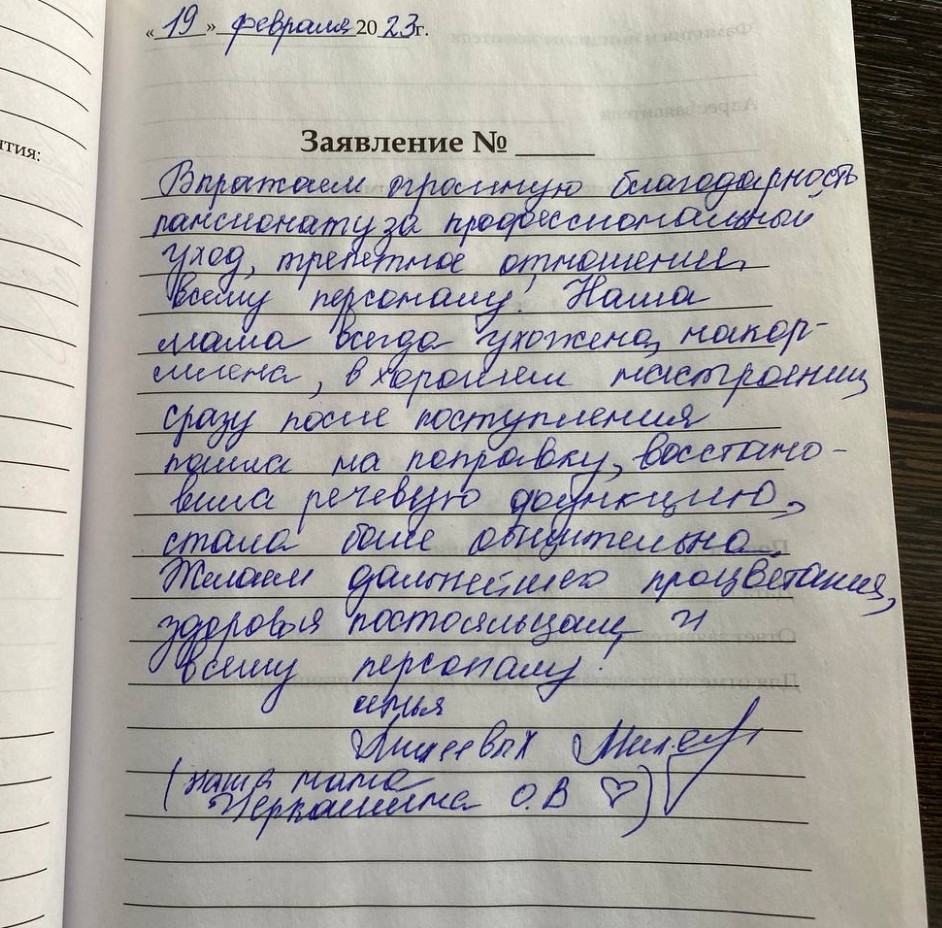 тия:
« 19 » февраля 2023г.
Заявление №
Выражаем огромную благодарность
пансионату за профессиональный
уход, трепетное отношение,
всему персоналу! Наша
мама всегда ухожена, накор-
млена, в хорошем настроении,
сразу после поступления
пошла на поправку, восстано-
вила речевую функцию,
стала более общительна.
Желаем дальнейшего процветания,
здоровья постояльцам, и
всему персоналу!
семья
(наша мама
О.В ♡)